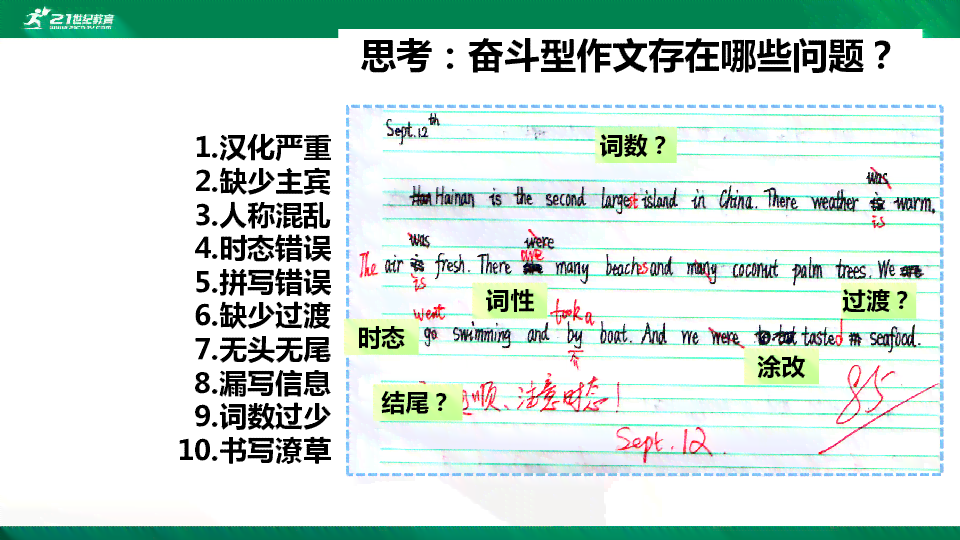 21世纪教育
WWW.21CNJY.COM
思考：奋斗型作文存在哪些问题？
1.汉化严重
2.缺少主宾
3.人称混乱
4.时态错误
5.拼写错误
6.缺少过渡
7.无头无尾
8.漏写信息
9.词数过少
10.书写潦草
Sept.12th
词数？
was
Hainan is the second largest island in China. There weather is warm.
is
was were
are
The air is fresh. There many beaches and many coconut palm trees. We are
is
词性
过渡？
went took a
时态
go swimming and by boat. And we were tasted seafood.
涂改
结尾？
顺、注意时态！
85
Sept.12.